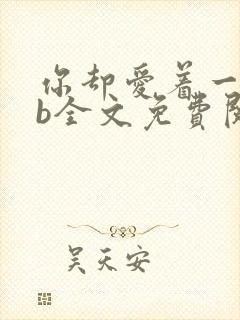 你却爱着一
b全文免费阅
吴天安